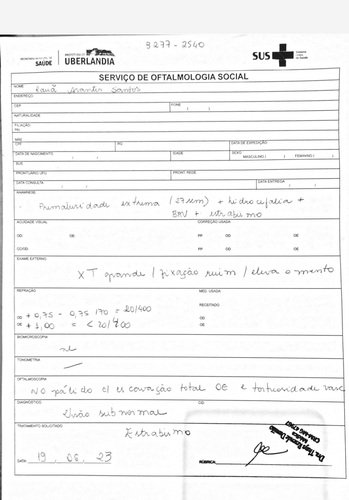 3277-2540
SECRETARIA MUNICIPAL DE SAÚDE
PREFEITURA DE UBERLÂNDIA
SUS
SERVIÇO DE OFTALMOLOGIA SOCIAL
NOME Santos
ENDEREÇO
CEP FONE ( )
NATURALIDADE
FILIAÇÃO
PAI
MÃE
CPF RG DATA DE EXPEDIÇÃO
DATA DE NASCIMENTO / / IDADE SEXO MASCULINO ( ) FEMININO ( )
SUS
PRONTUÁRIO UFU PRONT. REDE
DATA CONSULTA / / DATA ENTREGA / /
ANAMNESE
- Prematuridade extrema (27 sem) + hidrocefalia +
+ estrabismo
ACUIDADE VISUAL CORREÇÃO USADA
OD OE PP OD OE
CC/OD PP OD OE
EXAME EXTERNO
XT grande / fixação ruim / eleva o mento
REFRAÇÃO MED. USADA
RECEITADO
OD + 0,75 - 0,75 170 = 20/400 OD
OE + 1,00 = < 20/400 OE
BIOMICROSCOPIA
TONOMETRIA
OFTALMOSCOPIA
NO pálido c/ escavação total OE e tortuosidade vasc
DIAGNÓSTICO CID
Visão subnormal
TRATAMENTO SOLICITADO
Estrabismo
DATA: 19 . 06 . 23 RUBRICA: